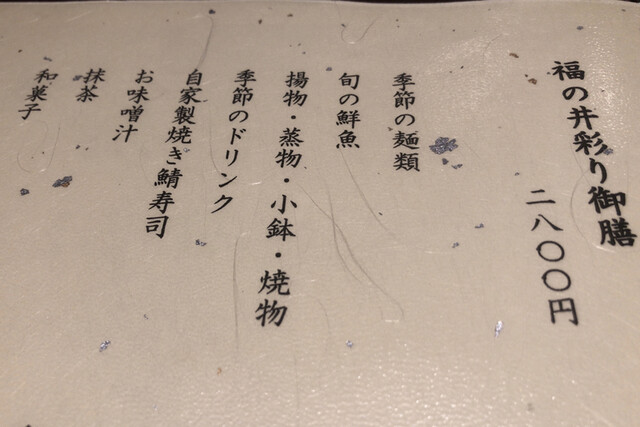 福の井彩り御膳
二八〇〇円
季節の麺類
旬の鮮魚
揚物・蒸物・小鉢・焼物
季節のドリンク
自家製焼き鯖寿司
お味噌汁
抹茶
和菓子